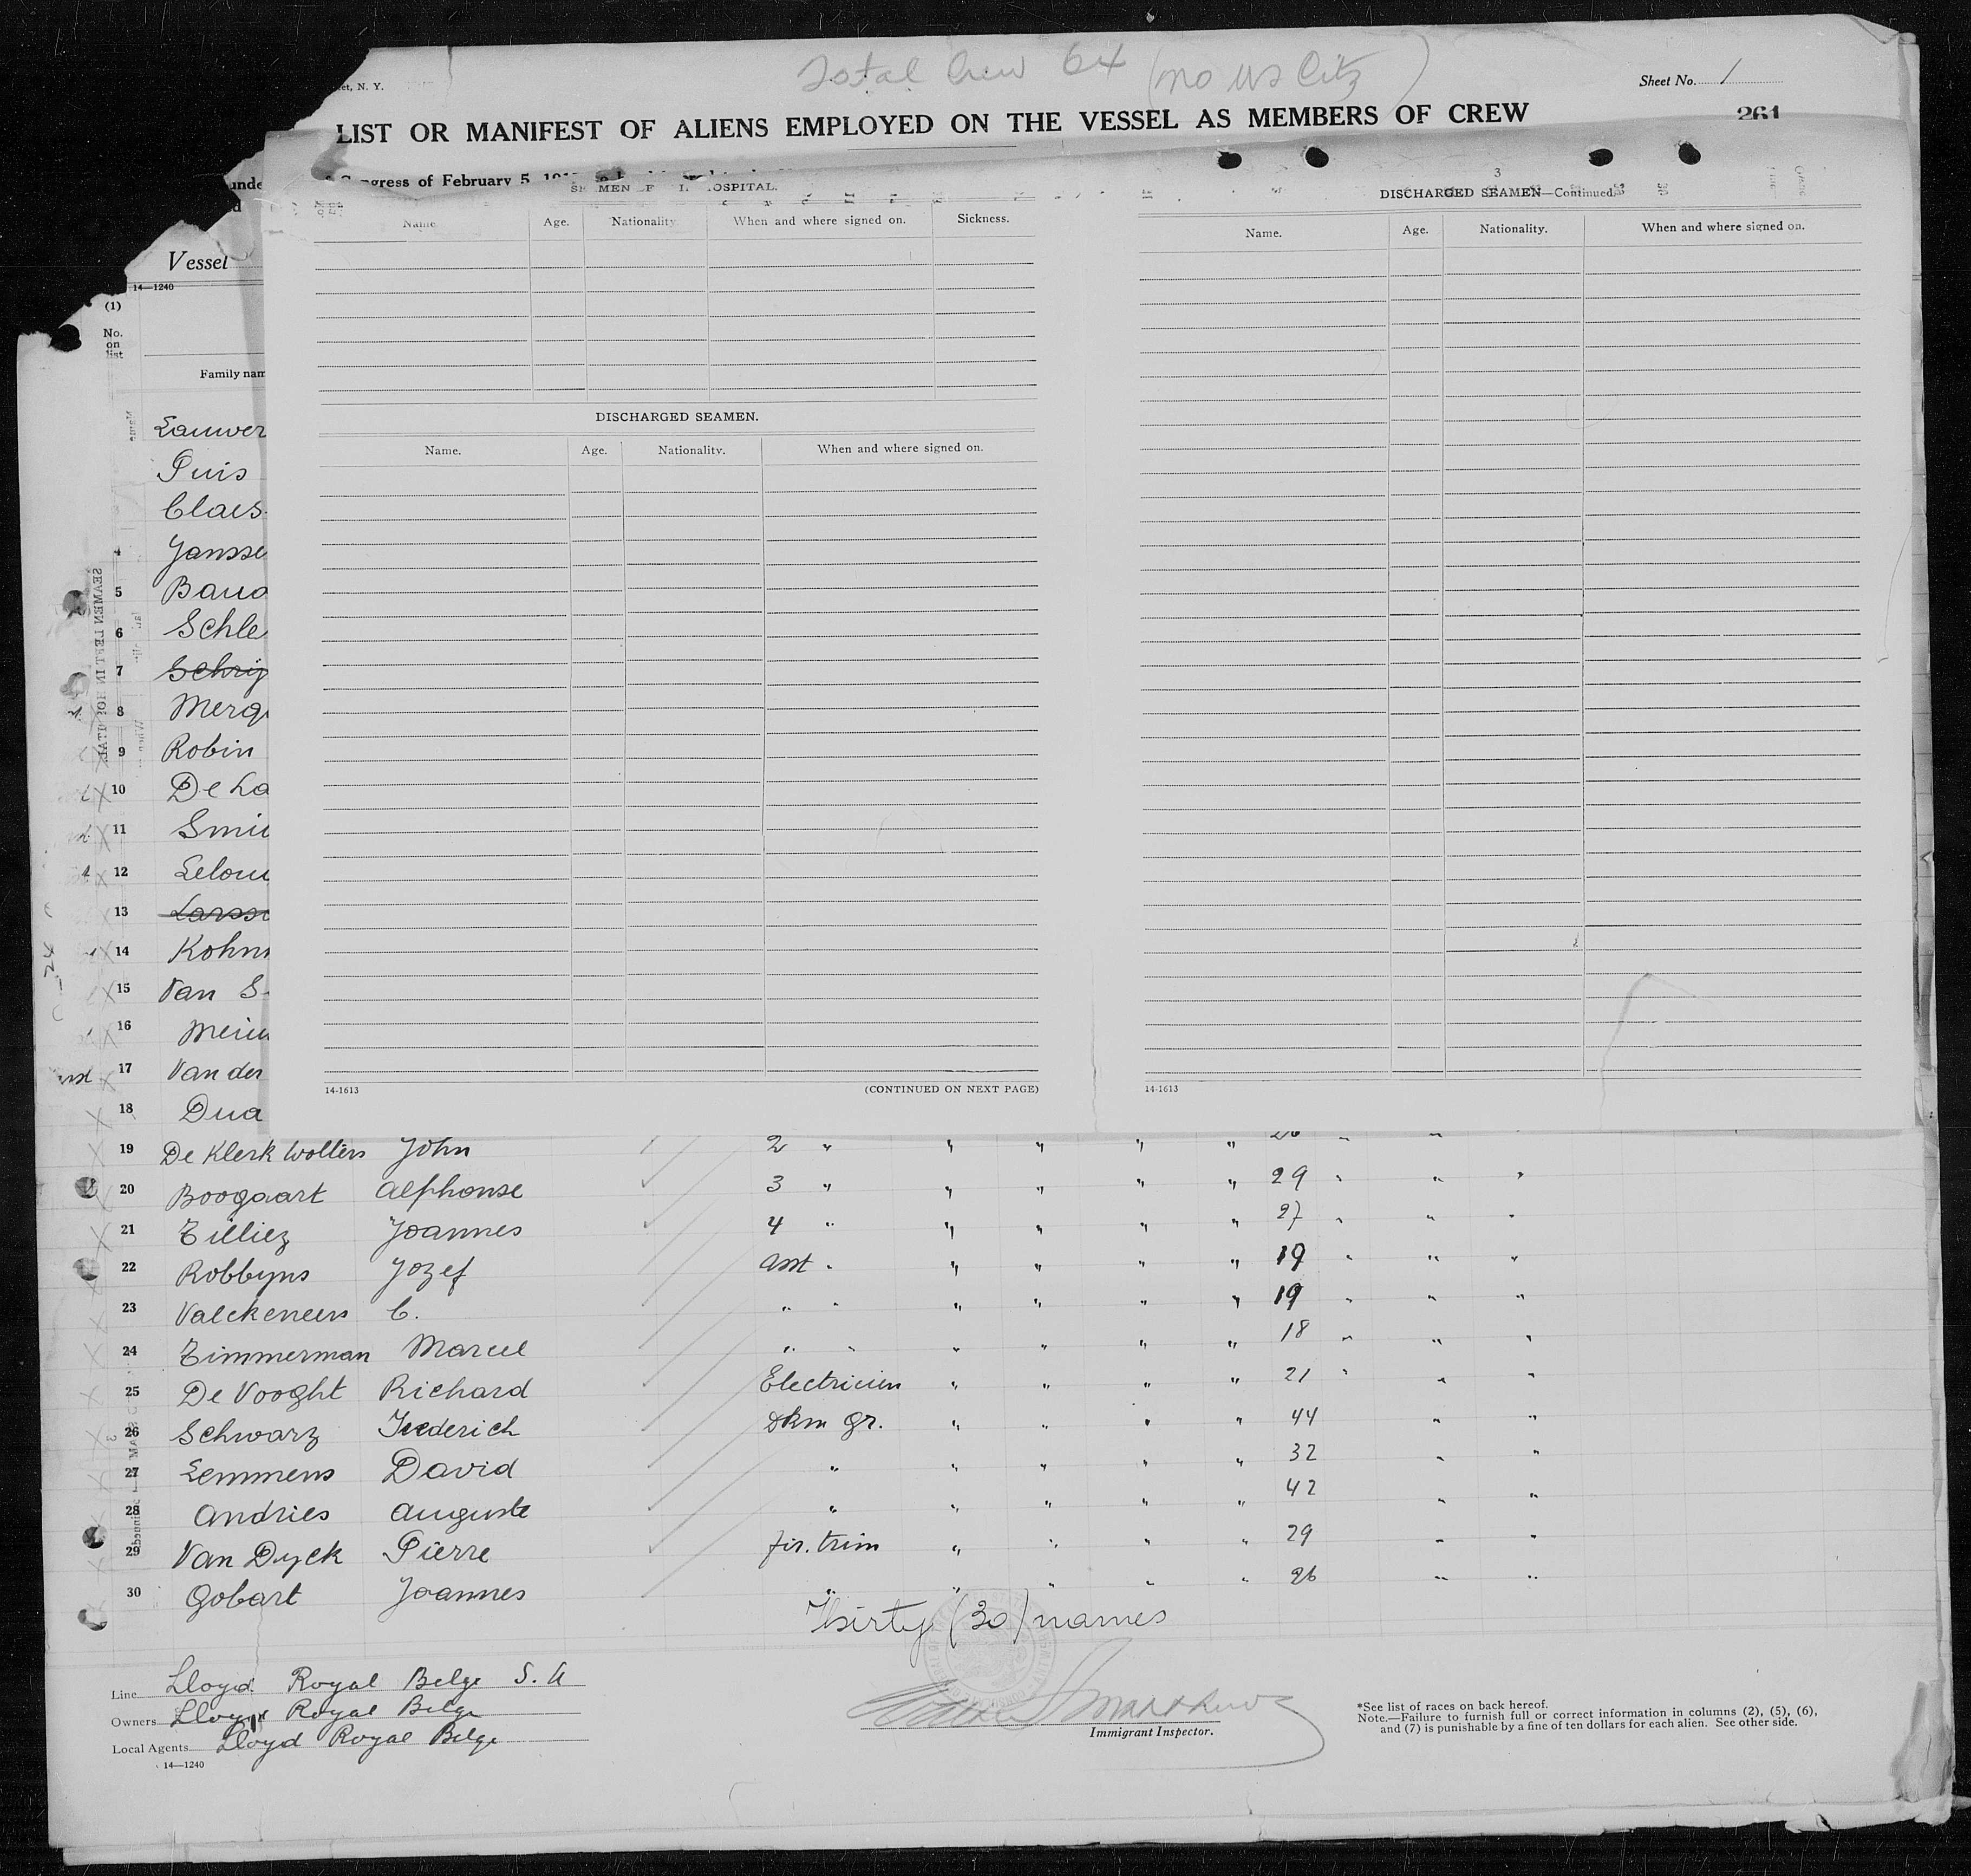 Total Crew 64 (no US Citz)
et, N. Y.
Sheet No. 1
LIST OR MANIFEST OF ALIENS EMPLOYED ON THE VESSEL AS MEMBERS OF CREW
261
unde Congress of February 5, 191
Vessel
14—1240
(1)
No. on list
Family nam
SEAMEN LEFT IN HOSPITAL.
Name. Age. Nationality. When and where signed on. Sickness.
DISCHARGED SEAMEN.
Name. Age. Nationality. When and where signed on.
14-1613 (CONTINUED ON NEXT PAGE)
3
DISCHARGED SEAMEN—Continued.
Name. Age. Nationality. When and where signed on.
14-1613
Lauwer
Puis
Claes
4 Jansse
5 Bauo
6 Schle
7 Schrij
8 Merg
9 Robin
10 De La
11 Smi
12 Lelou
13 Larss
14 Kohn
15 Van S
16 Meiu
17 Van der
18 Dua
19 De Klerk Wolters John 2 " " " " "
20 Boogaart Alphonse 3 " " " " " 29 " " "
21 Tilliez Joannes 4 " " " " " 27 " " "
22 Robbyns Jozef asst " " " " " 19 " " "
23 Valckeneers C. " " " " " " 19 " " "
24 Timmerman Marcel " " " " " " 18 " " "
25 De Vooght Richard Electricien " " " " 21 " " "
26 Schwarz Frederich dkm gr. " " " " 44 " "
27 Lemmens David " " " " " 32 " "
28 Andries Auguste " " " " " 42 " "
29 Van Dyck Pierre fir. trim " " " " 29 " "
30 Gobart Joannes " " " " " 26 " "
Thirty (30) names
Line Lloyd Royal Belge S. A
Owners Lloyd Royal Belge
Local Agents Lloyd Royal Belge
14—1240
Immigrant Inspector.
*See list of races on back hereof.
Note.—Failure to furnish full or correct information in columns (2), (5), (6),
and (7) is punishable by a fine of ten dollars for each alien. See other side.